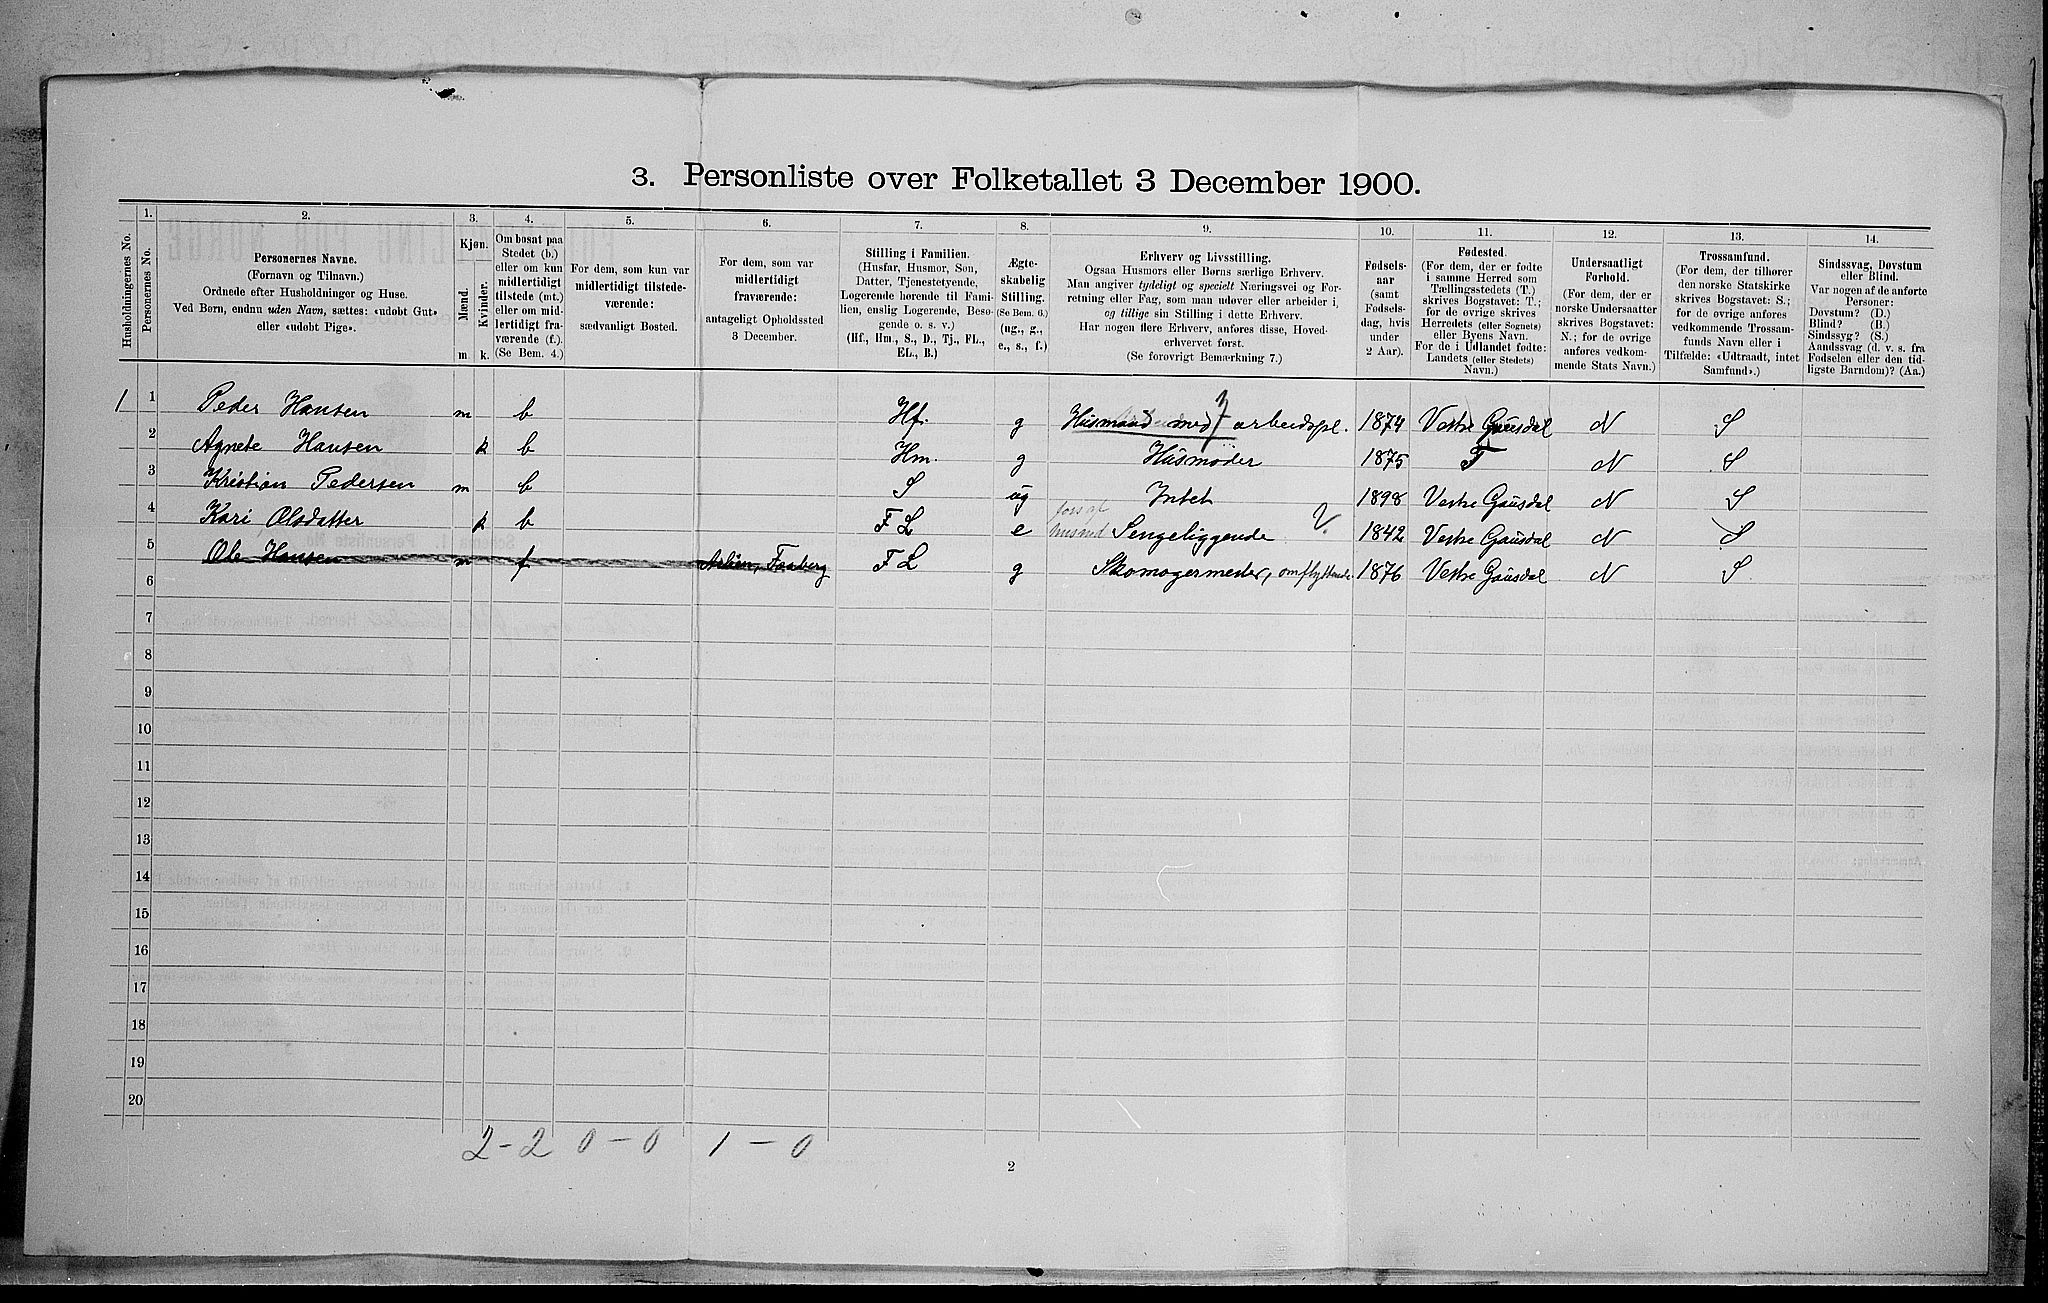 3. Personliste over Folketallet 3 December 1900.
1. 2. 3. 4. 5. 6. 7. 8. 9. 10. 11. 12. 13. 14.
Husholdningernes No.
Personernes No.
Personernes Navne.
(Fornavn og Tilnavn.)
Ordnede efter Husholdninger og Huse.
Ved Børn, endnu uden Navn, sættes: «udøbt Gut»
eller «udøbt Pige».
Kjøn.
Mænd.
Kvinder.
m k.
Om bosat paa
Stedet (b.)
eller om kun
midlertidigt
tilstede (mt.)
eller om mid-
lertidigt fra-
værende (f.)
(Se Bem. 4.)
For dem, som kun var
midlertidigt tilstede-
værende:
sædvanligt Bosted.
For dem, som var
midlertidigt
fraværende:
antageligt Opholdssted
3 December.
Stilling i Familien.
(Husfar, Husmor, Søn,
Datter, Tjenestetyende,
Logerende hørende til Fami-
lien, enslig Logerende, Besø-
gende o. s. v.)
(Hf., Hm., S., D., Tj., FL.,
EL., B.)
Ægte-
skabelig
Stilling.
(Se Bem. 6.)
(ug., g.,
e., s., f.)
Erhverv og Livsstilling.
Ogsaa Husmors eller Børns særlige Erhverv.
Man angiver tydeligt og specielt Næringsvei og For-
retning eller Fag, som man udøver eller arbeider i,
og tillige sin Stilling i dette Erhverv.
Har nogen flere Erhverv, anføres disse, Hoved-
erhvervet først.
(Se forøvrigt Bemærkning 7.)
Fødsels-
aar
(samt
Fødsels-
dag, hvis
under
2 Aar).
Fødested.
(For dem, der er fødte
i samme Herred som
Tællingsstedets (T.)
skrives Bogstavet: T.;
for de øvrige skrives
Herredets (eller Sognets)
eller Byens Navn.
For de i Udlandet fødte:
Landets (eller Stedets)
Navn.)
Undersaatligt
Forhold.
(For dem, der er
norske Undersaatter
skrives Bogstavet:
N.; for de øvrige
anføres vedkom-
mende Stats Navn.)
Trossamfund.
(For dem, der tilhører
den norske Statskirke
skrives Bogstavet: S.;
for de øvrige anføres
vedkommende Trossam-
funds Navn eller i
Tilfælde: «Udtraadt, intet
Samfund».)
Sindssvag, Døvstum
eller Blind.
Var nogen af de anførte
Personer:
Døvstum? (D.)
Blind? (B.)
Sindssyg? (S.)
Aandssvag (d. v. s. fra
Fødselen eller den tid-
ligste Barndom)? (Aa.)
1 1 Peder Hansen m b Hf. g Husmand med arbeidspl. 1874 Vestre Gausdal N S
2 Agnete Hansen k b Hm. g Husmoder 1875 T N S
3 Kristian Pedersen m b S ug Intet 1898 Vestre Gausdal N S
4 Kari Olsdatter k b FL e Sengeliggende 1842 Vestre Gausdal N S
5 Ole Hansen m f Faaberg FL g Skomagermester, omflyttende 1876 Vestre Gausdal N S
6
7
8
9
10
11
12
13
14
15
16
17
18
19
20
2-2 0-0 1-0
2